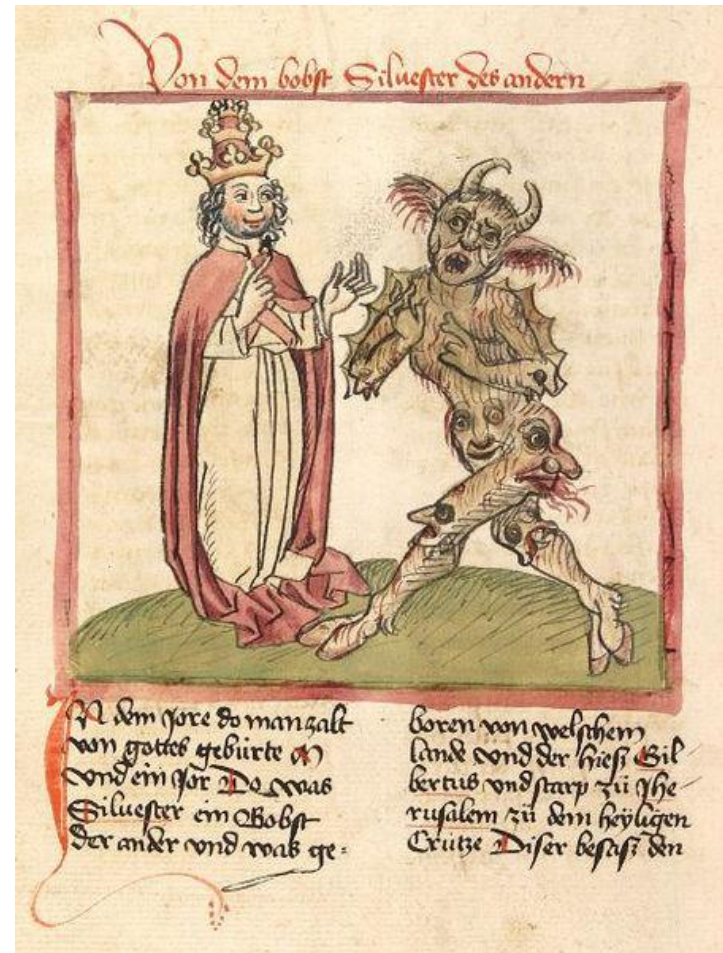 Von dem bobst Siluester des andern
IN dem Jore do man zalt
von gottes gebürte M
vnd ein Jor Do was
Siluester ein Bobst
der ander vnd was ge-
boren von welschem
lande vnd der hiesz Gil
bertus vnd starp zü Jhe-
rusalem zü dem heÿligen
Crütze Diser besasz den